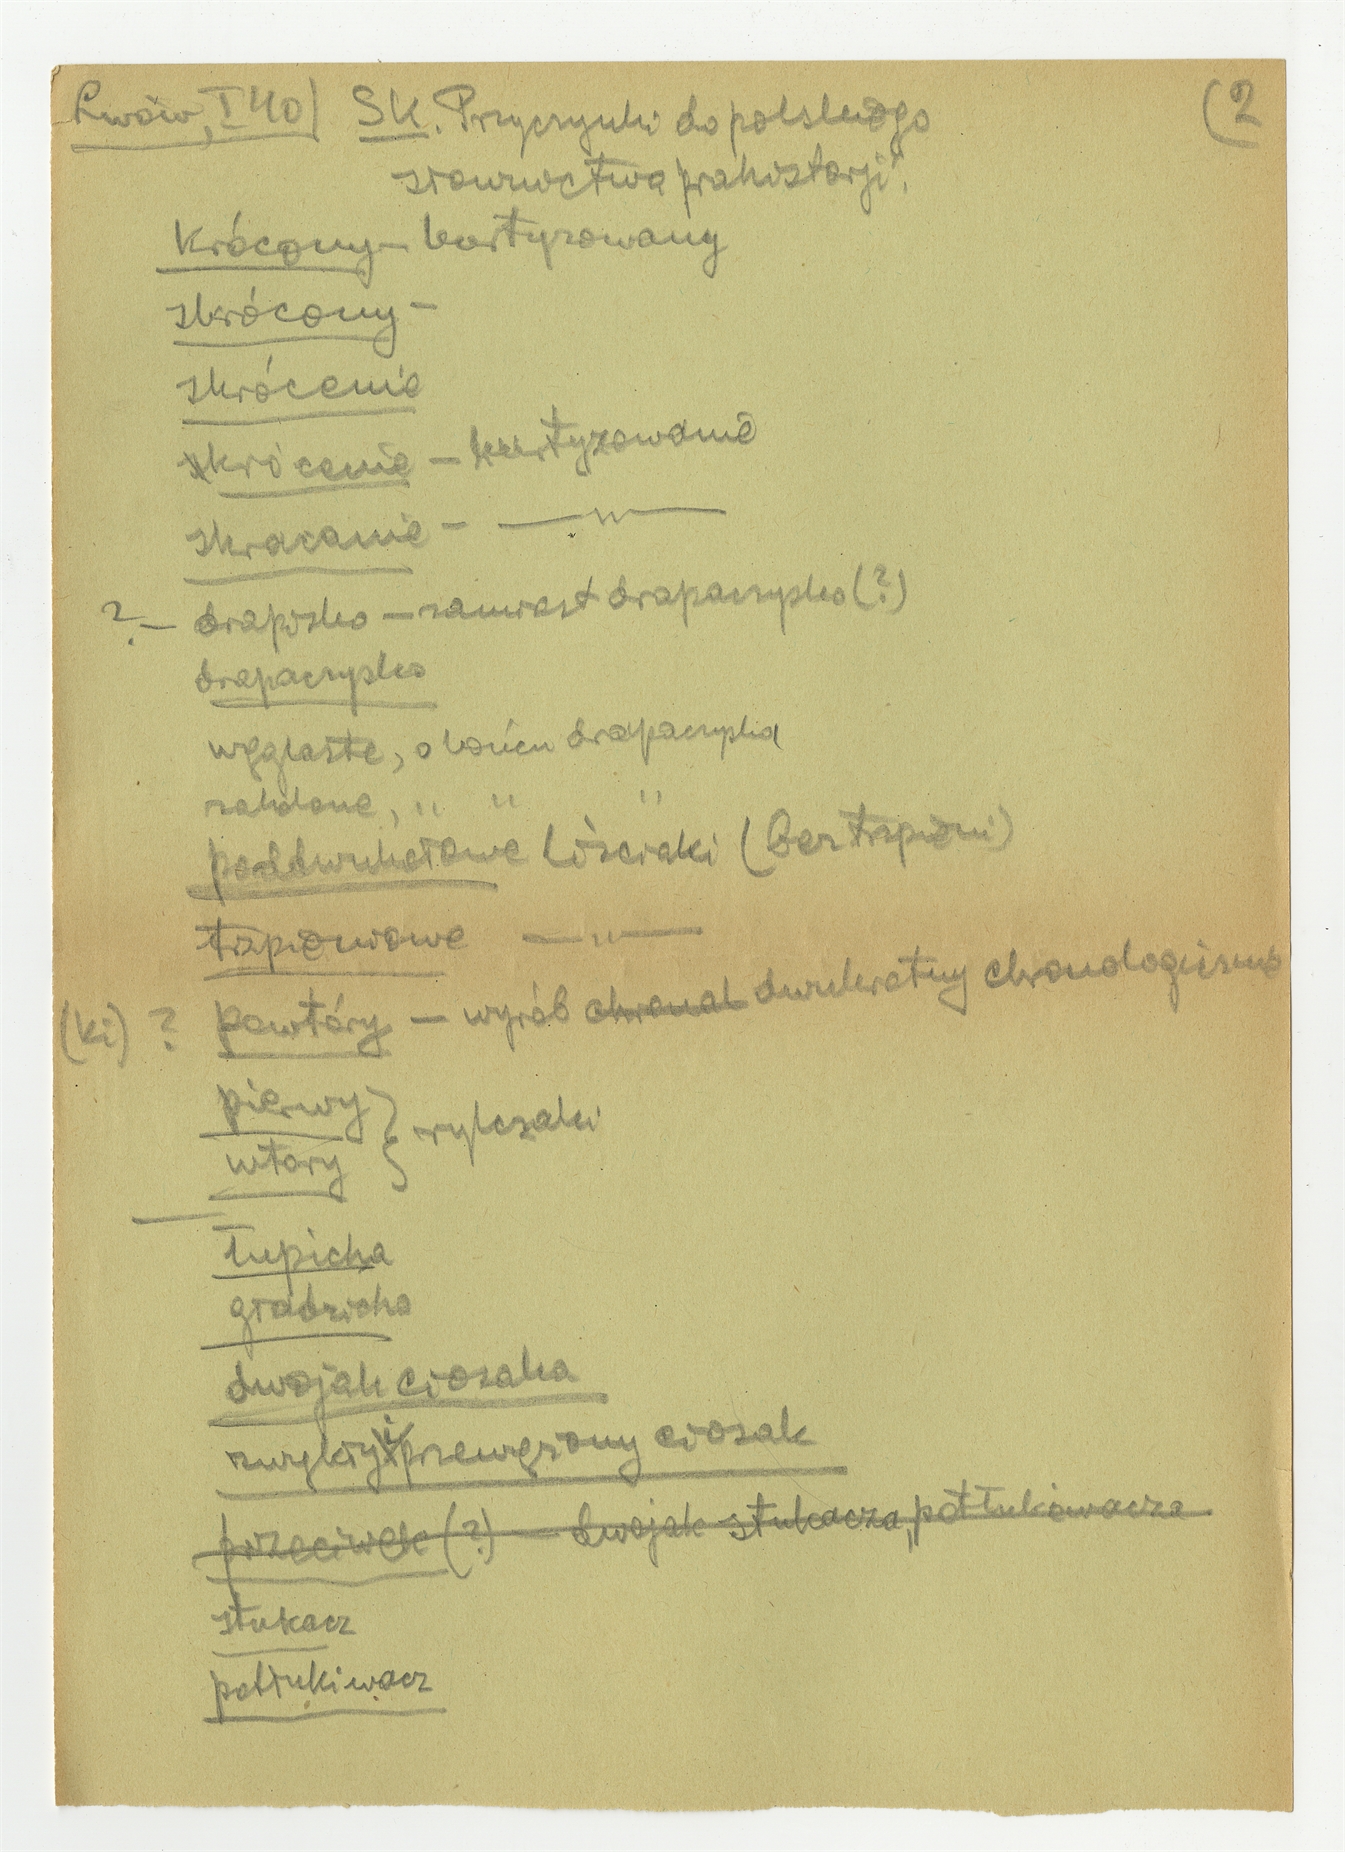 Lwów, I 40) SK. Przyczynki do polskiego (2
słownictwa prahistorji.
krócony - kurtyzowany
skrócony -
skrócenie
krócenie - kurtyzowanie
skracanie - —〃—
? - drapisko - zamiast drapaczysko (?)
drapaczysko
węglaste, o końcu drapaczyska
zakolane, 〃 〃 〃
poddwukątowe liściaki (bez trzpieni)
trzpieniowe —〃—
(ki) ? powtóry - wyrób chronol dwukrotny chronologicznie
pierwy } rylczaki
wtóry
łupicha
gładzicha
dwojak ciosaka
zwykły i przewężony ciosak
przeciwek (?) - dwojak stukacza, potłukiwacza
stukacz
potłukiwacz